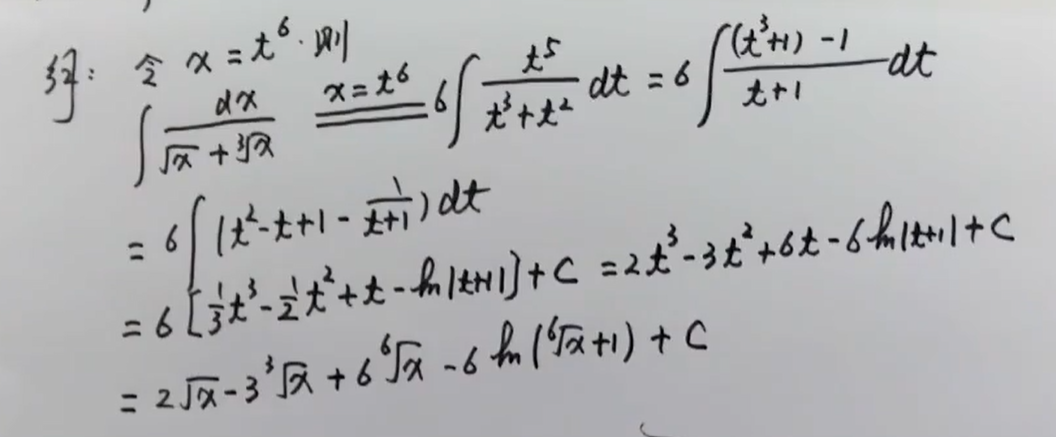 解: 令 x = t⁶. 则
∫ dx/(√x + ³√x) \overset{x=t⁶}{=} 6∫ t⁵/(t³+t²) dt = 6∫ ((t³+1) -1)/(t+1) dt
= 6∫ (t²-t+1 - 1/(t+1)) dt
= 6[1/3 t³ - 1/2 t² + t - ln|t+1|] + C = 2t³ - 3t² + 6t - 6 ln|t+1| + C
= 2√x - 3 ³√x + 6 ⁶√x - 6 ln(⁶√x + 1) + C